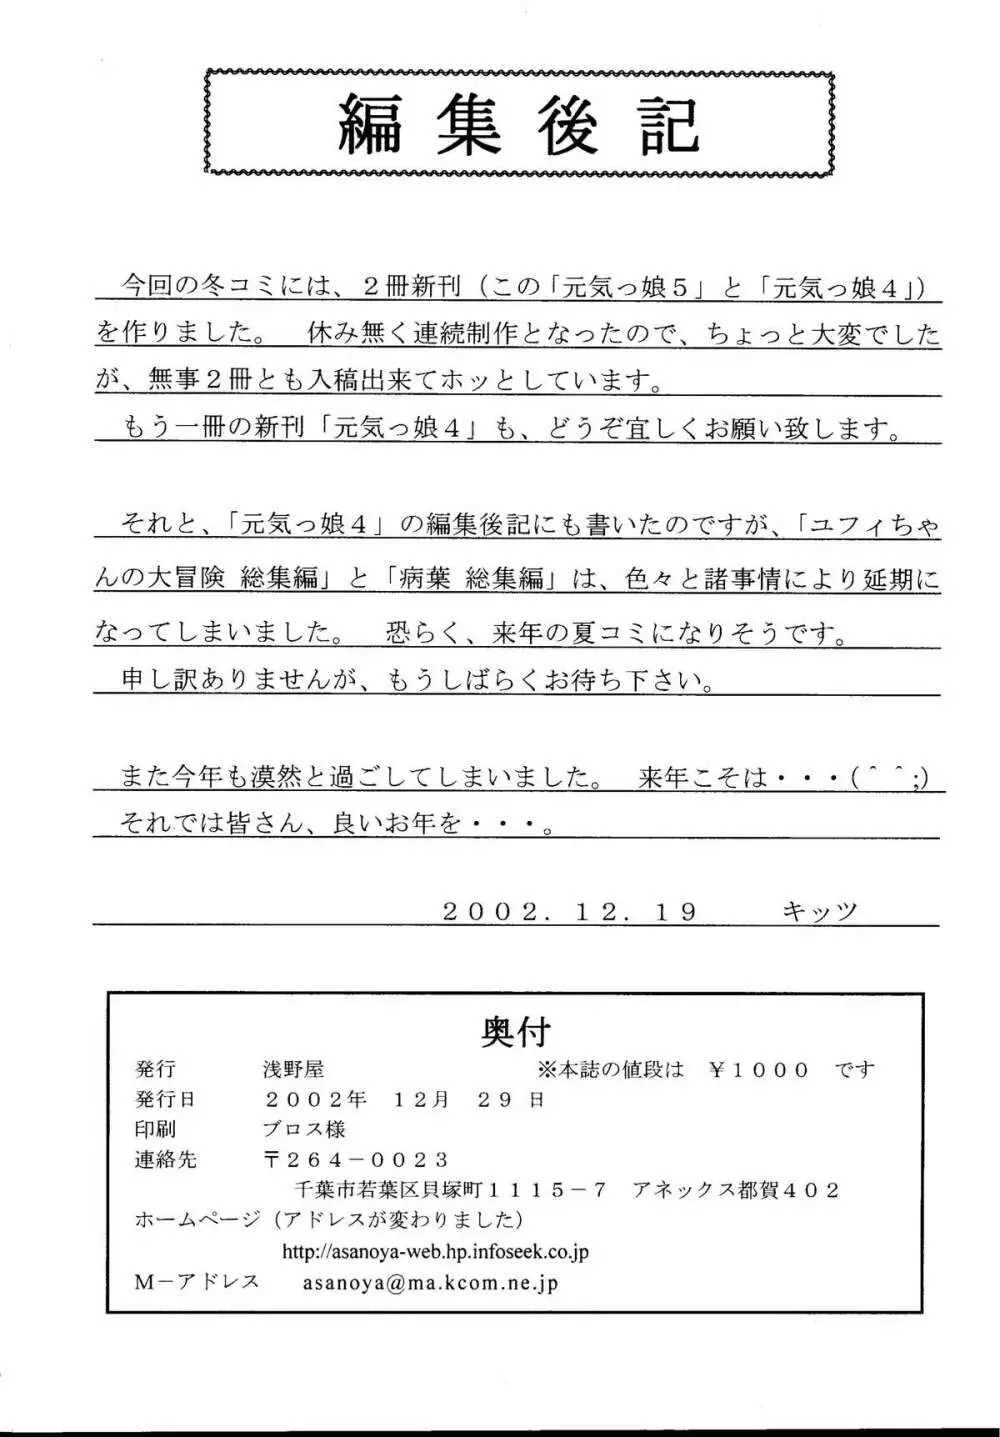 編集後記
今回の冬コミには、２冊新刊（この「元気っ娘５」と「元気っ娘４」）
を作りました。　休み無く連続制作となったので、ちょっと大変でした
が、無事２冊とも入稿出来てホッとしています。
もう一冊の新刊「元気っ娘４」も、どうぞ宜しくお願い致します。
それと、「元気っ娘４」の編集後記にも書いたのですが、「ユフィちゃ
んの大冒険 総集編」と「病葉 総集編」は、色々と諸事情により延期に
なってしまいました。　恐らく、来年の夏コミになりそうです。
申し訳ありませんが、もうしばらくお待ち下さい。
また今年も漠然と過ごしてしまいました。　来年こそは・・・(＾＾;)
それでは皆さん、良いお年を・・・。
２００２．１２．１９　　キッツ
奥付
発行　　浅野屋　　※本誌の値段は　￥１０００　です
発行日　　２００２年　１２月　２９日
印刷　　ブロス様
連絡先　　〒２６４－００２３
千葉市若葉区貝塚町１１１５－７　アネックス都賀４０２
ホームページ（アドレスが変わりました）
http://asanoya-web.hp.infoseek.co.jp
Ｍ－アドレス　　asanoya@ma.kcom.ne.jp